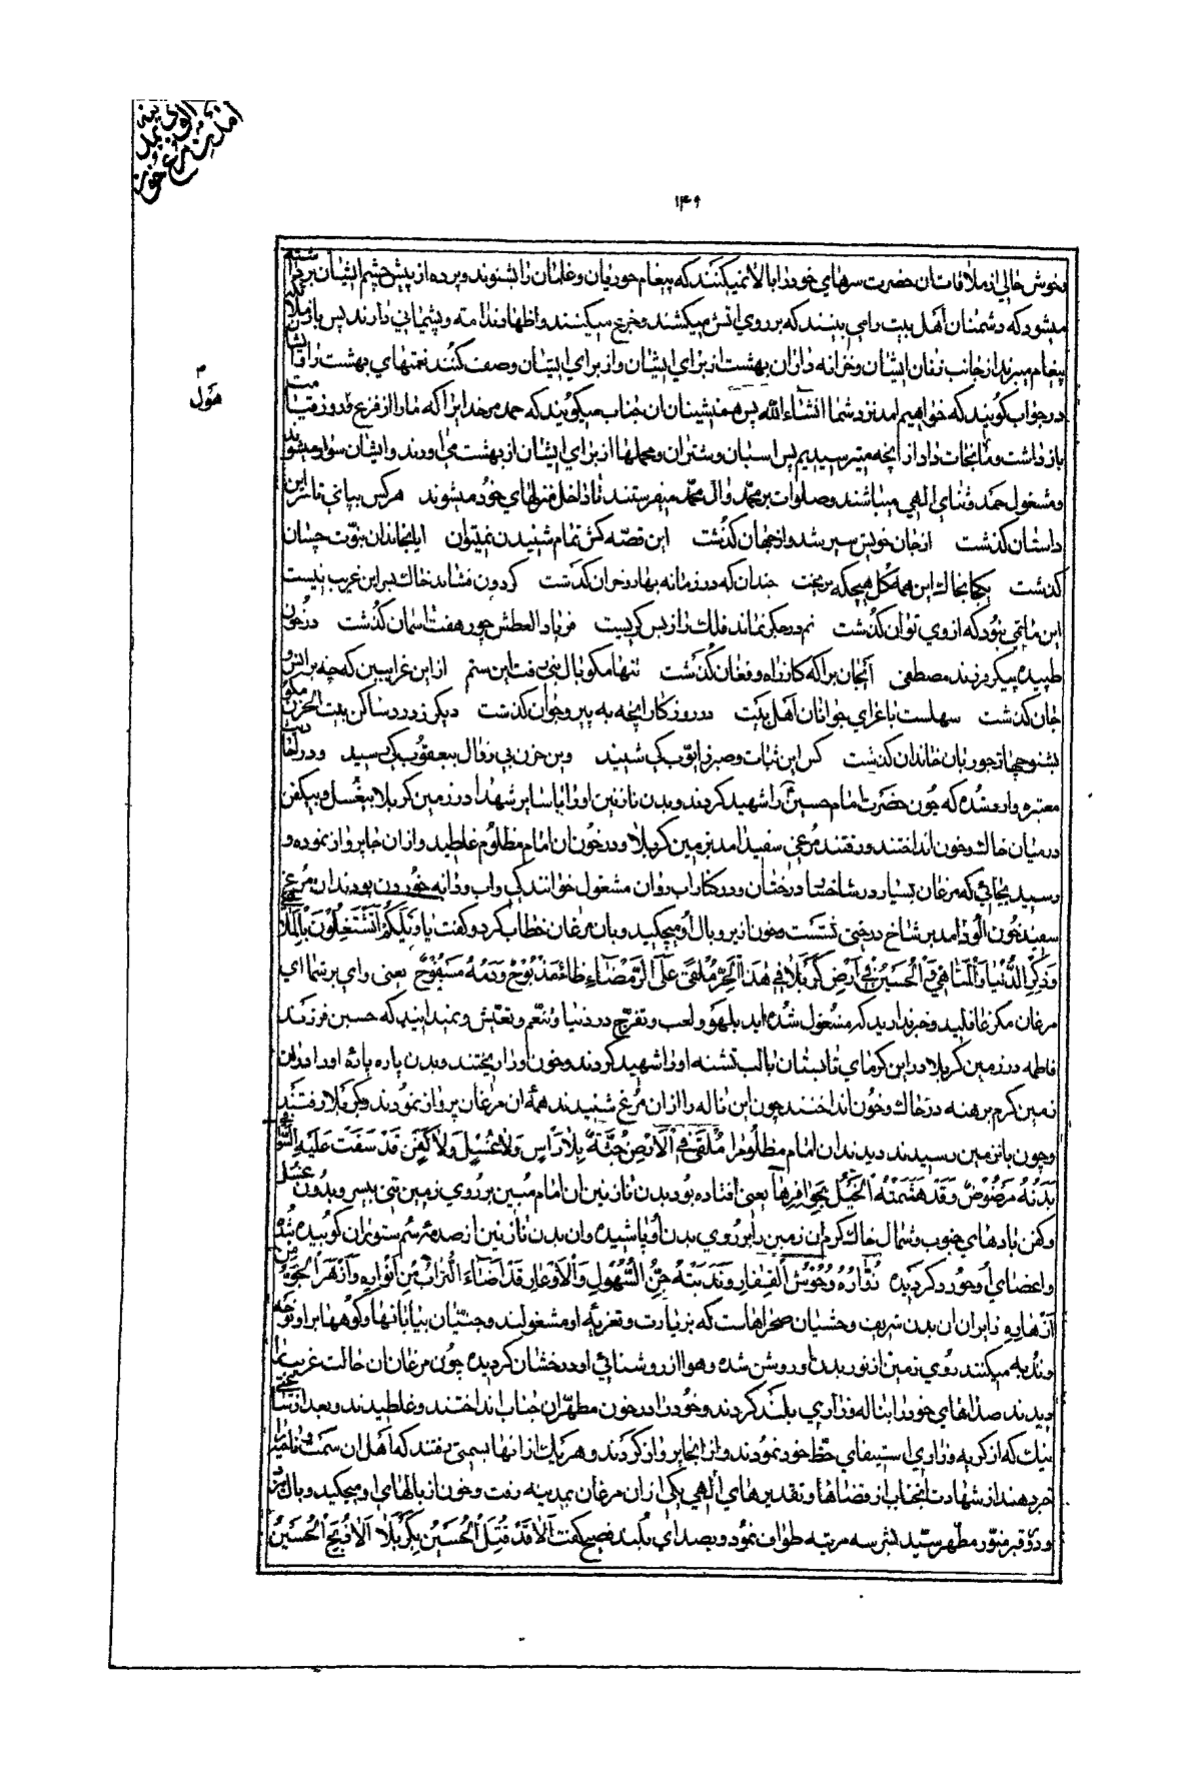 امدن مرغ خون
الود بمد
ینه
۱۴۶
وخوش حالي از ملاقات ان حضرت سرهاي خود را بالا نمیکنند که پیغام حوریان و غلمان را بشنوند و پرده از پیش چشم ایشان برداشته
میشود که دشمنان اهل بیت را می بینند که بر روي اتش میکشند و خرع میکنند و اظهار ندامه و پشیماني دارند پس باز ملائکه
پیغام میبرند از جانب زنان ایشان و خزانه داران بهشت از براي ایشان و از براي ایشان وصف کنند نعمتهاي بهشت را و ایشان
هول
در جواب کویند که خواهیم امد نزد شما انشاء الله پس همنشینان ان جناب میکویند که حمد مر خدایرا که ما را از فزع روز قیامت
باز داشت و ما را نجات داد از انچه میترسیدیم پس اسبان و شتران و محملها از براي ایشان از بهشت می اورند و ایشان سوار میشوند
و مشغول حمد و ثناي الهي میباشند و صلوات بر محمد و ال محمد میفرستند تا داخل منزلهاي خود میشوند هر کس بپاي تا سر این
داستان کذشت از جان خویش سیر شد و از جهان کذشت این قصه کش تمام شنیدن نمیتوان ایا بخاندان نبوت چسان
کذشت یکجا بخاک این همه کل هیچکه نریخت چندان که در زمانه بهار و خزان کذشت کردون فشاند خاک بسر این غریب نیست
این ماتمي نبود که از وي توان کذشت نم در جکر نماند فلک را ز بس کریست فریاد العطش چو ز هفت اسمان کذشت در خون
طپیده پیکر فرزند مصطفی انجنان براکه کار ز اه و فغان کذشت تنها مکو بال نبي رفت این ستم از این غرا ببین که چه بر انس و
جان کذشت سهلست با عزاي جوانان اهل بیت در روزکار انچه به پیر و جوان کذشت دیکر ز درد ساکن بیت الحزن مکو
بشنو چها ز جور بان خاندان کذشت کس این ثبات و صبر ز ایوب کي شنید وین حزن بي زوال بیعقوب کي رسید و در احادیث
معتبره وارد شده که چون حضرت امام حسین را شهید کردند و بدن نازنین او را با سایر شهدا در زمین کربلا بیغسل و بیکفن
در میان خاک و خون انداختند و رفتند مرغي سفید امد بزمین کربلا و در خون ان امام مظلوم غلطید و از ان جا پرواز نموده و
رسید بجائي که مرغان بسیار در شاخها درختان و در کنار اب روان مشغول خوانندکي و اب و دانه خوردن بودند ان مرغ
سفید خون الود امد بر شاخ درختي نشست و خون از پر و بال او میچکید و بان مرغان خطاب کرد و کفت یا ویلکم اتشتغلون بالملاهي
وذکر الدنیا والمناهي والحسین في ارض کربلا في هذا الحر ملقي علی الرمضاء ظامئ مذبوح ودمه مسفوح یعني واي بر شما اي
مرغان مکر غافلید و خبر ندارید که مشغول شده اید بلهو و لعب و تفرج در دنیا و تنعم و تعیش و نمیدانید که حسین فرزند
فاطمه در زمین کربلا در این کرماي تابستان با لب تشنه او را شهید کردند و خون او را ریختند و بدن پاره پارهٔ او را در ان
زمین کرم برهنه در خاک و خون انداختند چون این ناله را از ان مرغ شنیدند همهٔ ان مرغان پرواز نمودند و بکربلا رفتند
و چون بان زمین رسیدند دیدند ان امام مظلوم را ملقی في الارض جثة بلا راس ولا غسل ولا کفن قد سفت علیه السوافي
بدنه مرضوض وقد هشمته الخیل بحوافرها یعني افتاده بود بدن نازنین ان امام مبین بر روي زمین تني بیسر و بدون غسل
و کفن بادهاي جنوب و شمال خاک کرم ان زمین را بر روي بدن او پاشیده و ان بدن نازنین از صدمهٔ سم ستوران کوبیده شده
و اعضاي او خورد کردیده زواره وحوش القفار وندبته جن السهول والاوعار قد اضاء التراب من انواره وازهر الجو من
ازهاره زایران ان بدن شریف وحشیان صحراهاست که بزیارت و تعزیهٔ او مشغولند و جنیان بیابانها و کوهها بر او نوحه
و ندبه میکنند روي زمین از نور بدن او روشن شده و هوا از روشنائي او درخشان کردیده چون مرغان ان حالت غریب را
دیدند صداهاي خود را بناله و زاري بلند کردند و خود را در خون مطهر ان جناب انداختند و غلطیدند و بعد از ساعتي
نیک که از کریه و زاري استیفاي حظ خود نمودند و از انجا پرواز کردند و هر یک از انها بسمتي رفتند که اهل ان سمت و ناحیه را
خبر دهند از شهادت انجناب از قضاها و تقدیرهاي الهي یکي از ان مرغان بمدینه رفت و خون از بالهاي او میچکید و بال زد
و دور قبر منور مطهر سید بشر سه مرتبه طواف نمود و بصداي بلند فصیح کفت الا قد قتل الحسین بکربلا الا ذبح الحسین